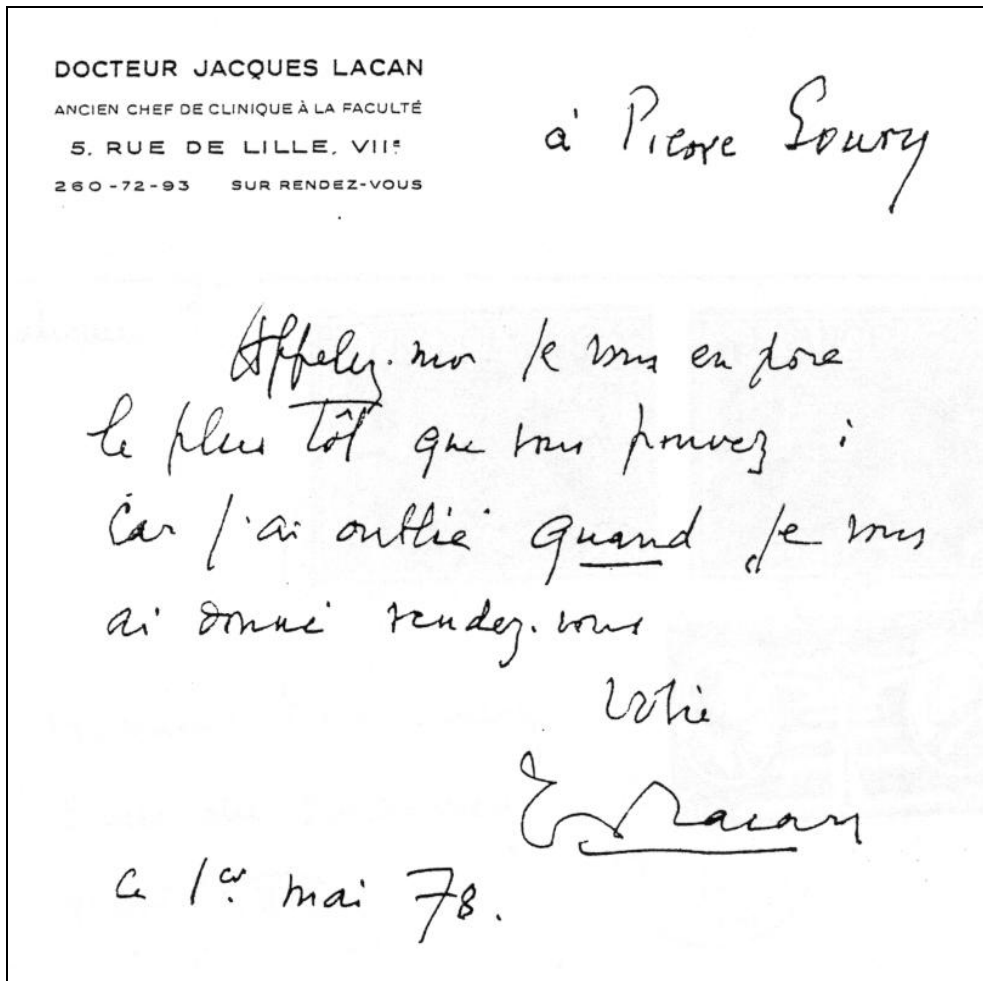 DOCTEUR JACQUES LACAN
ANCIEN CHEF DE CLINIQUE À LA FACULTÉ
5, RUE DE LILLE, VIIᵉ
260-72-93 SUR RENDEZ-VOUS
à Pierre Soury
Appelez-moi je vous en prie
le plus tôt que vous pouvez :
car j'ai oublié quand je vous
ai donné rendez-vous
Votre
Lacan
ce 1er mai 78.